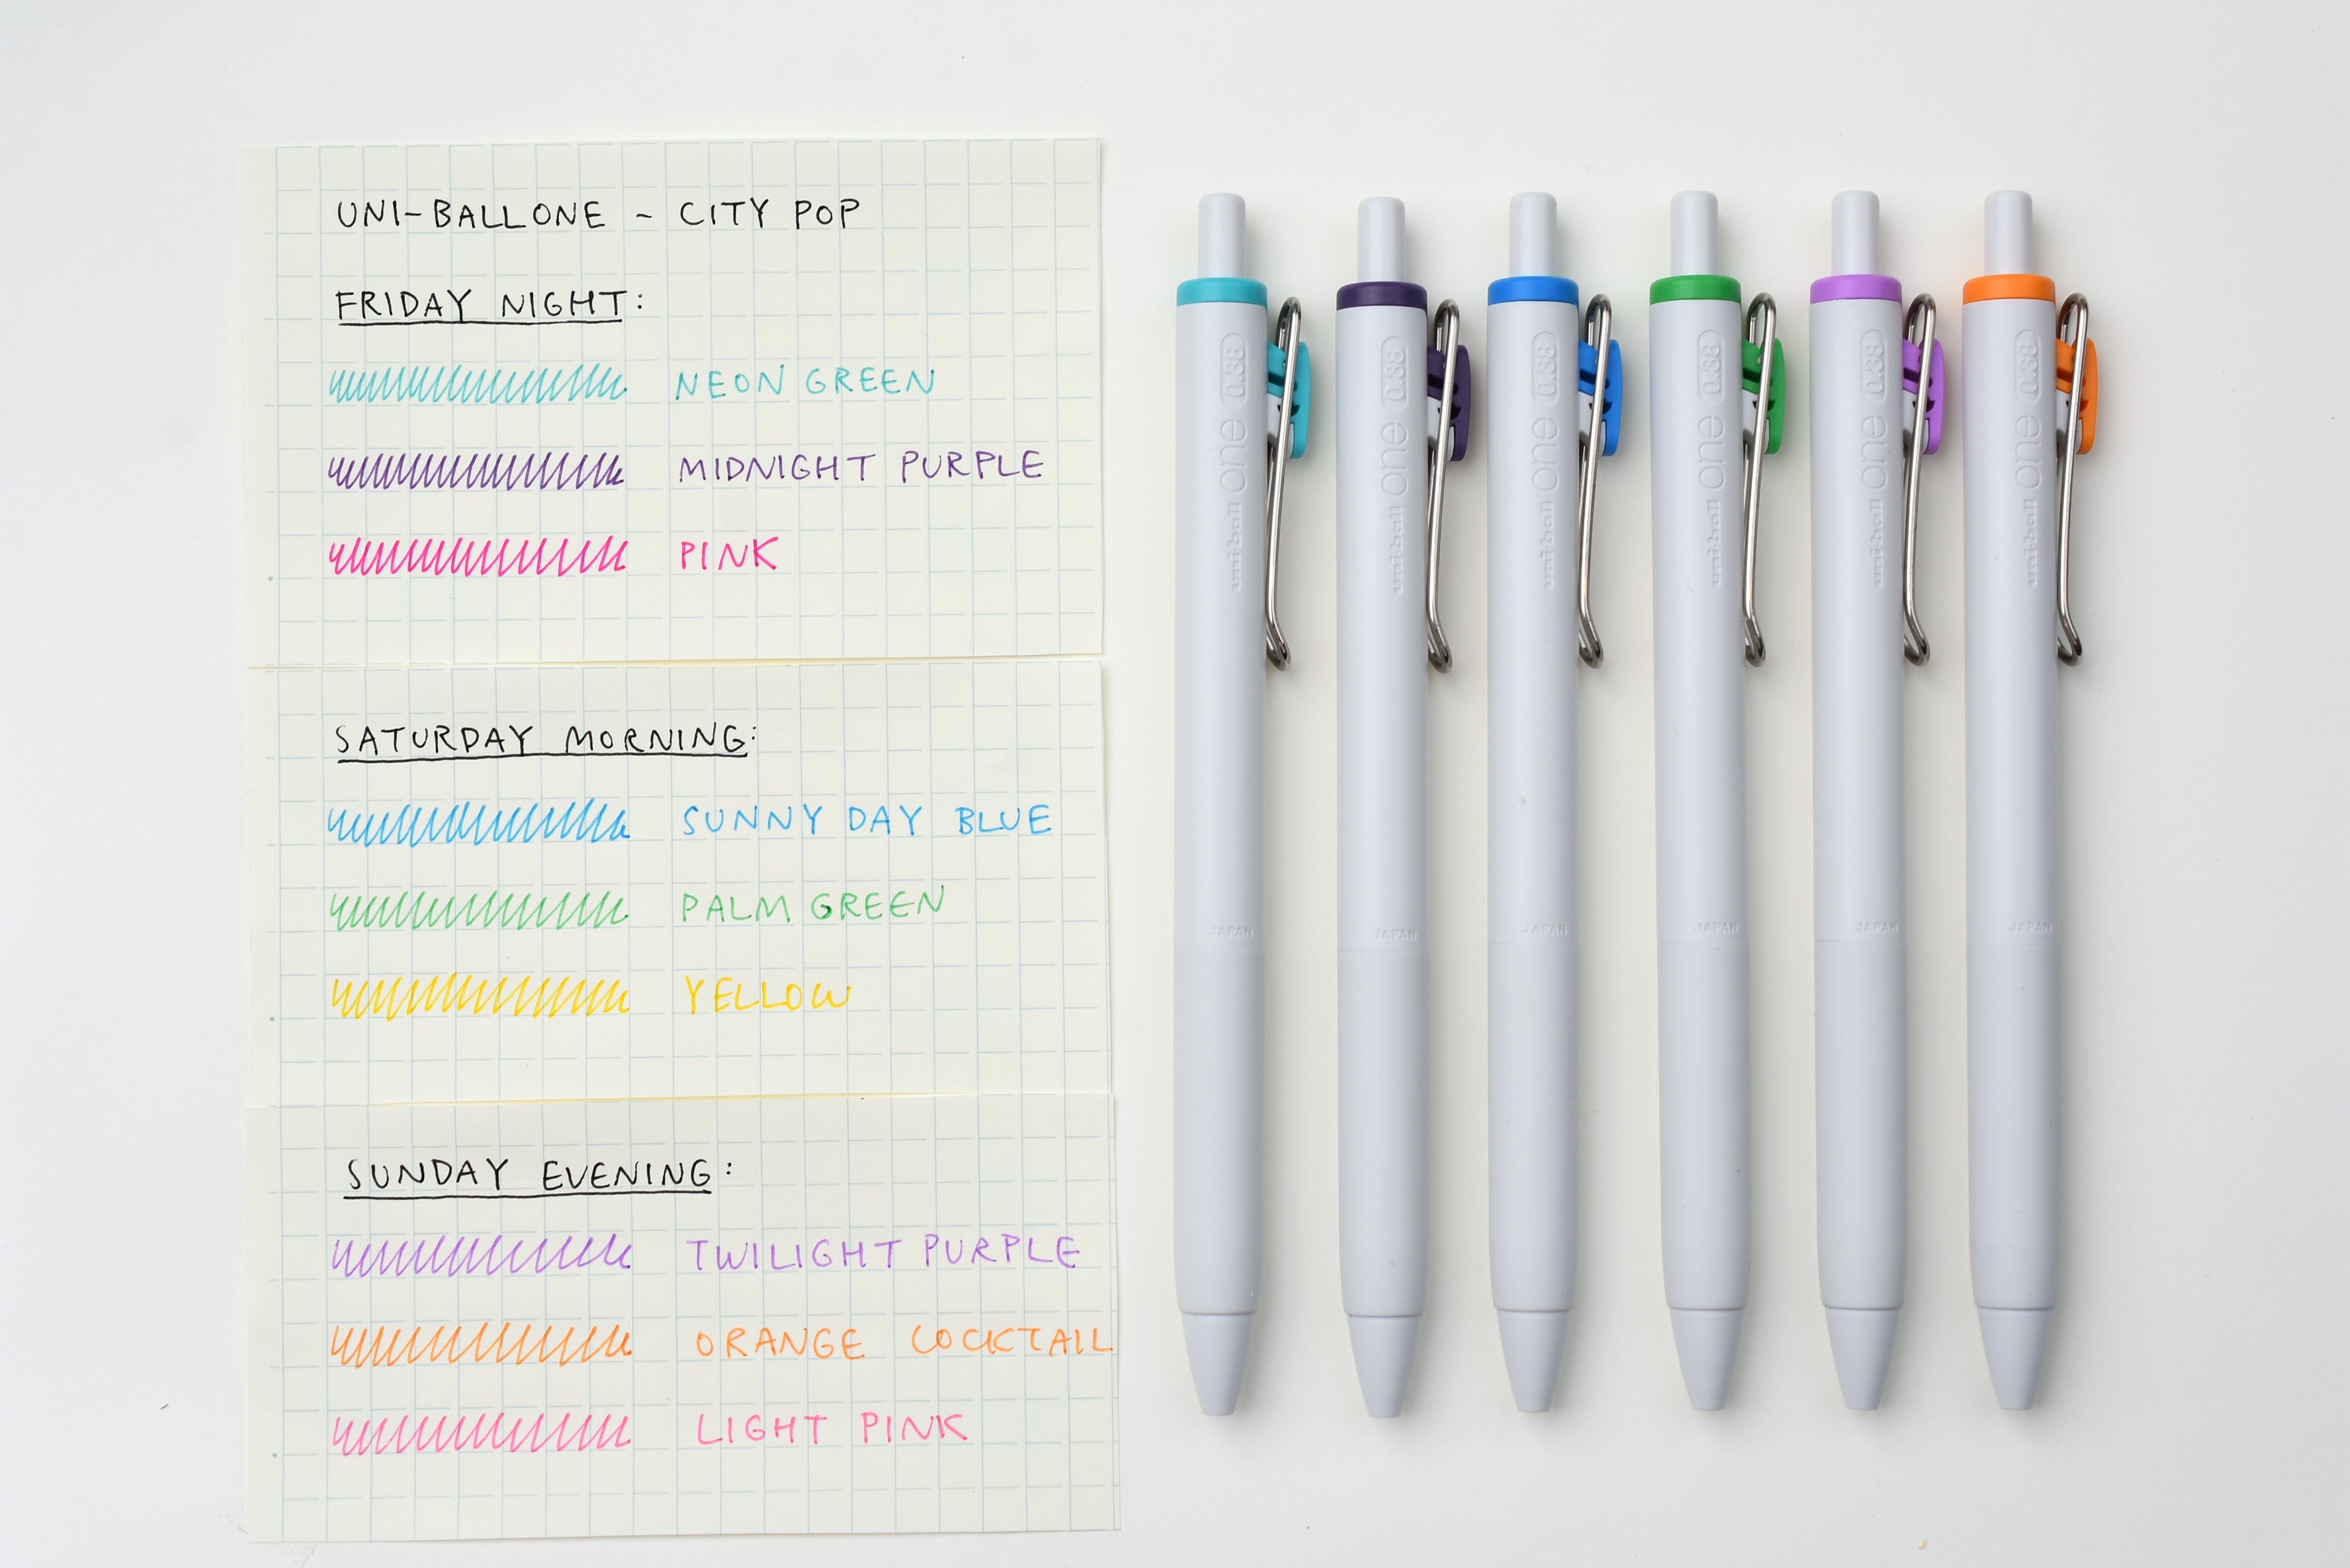 UNI-BALL ONE - CITY POP
FRIDAY NIGHT:
NEON GREEN
MIDNIGHT PURPLE
PINK
SATURDAY MORNING:
SUNNY DAY BLUE
PALM GREEN
YELLOW
SUNDAY EVENING:
TWILIGHT PURPLE
ORANGE COCKTAIL
LIGHT PINK
uni-ball one 0.38
JAPAN
uni-ball one 0.38
JAPAN
uni-ball one 0.38
JAPAN
uni-ball one 0.38
JAPAN
uni-ball one 0.38
JAPAN
uni-ball one 0.38
JAPAN